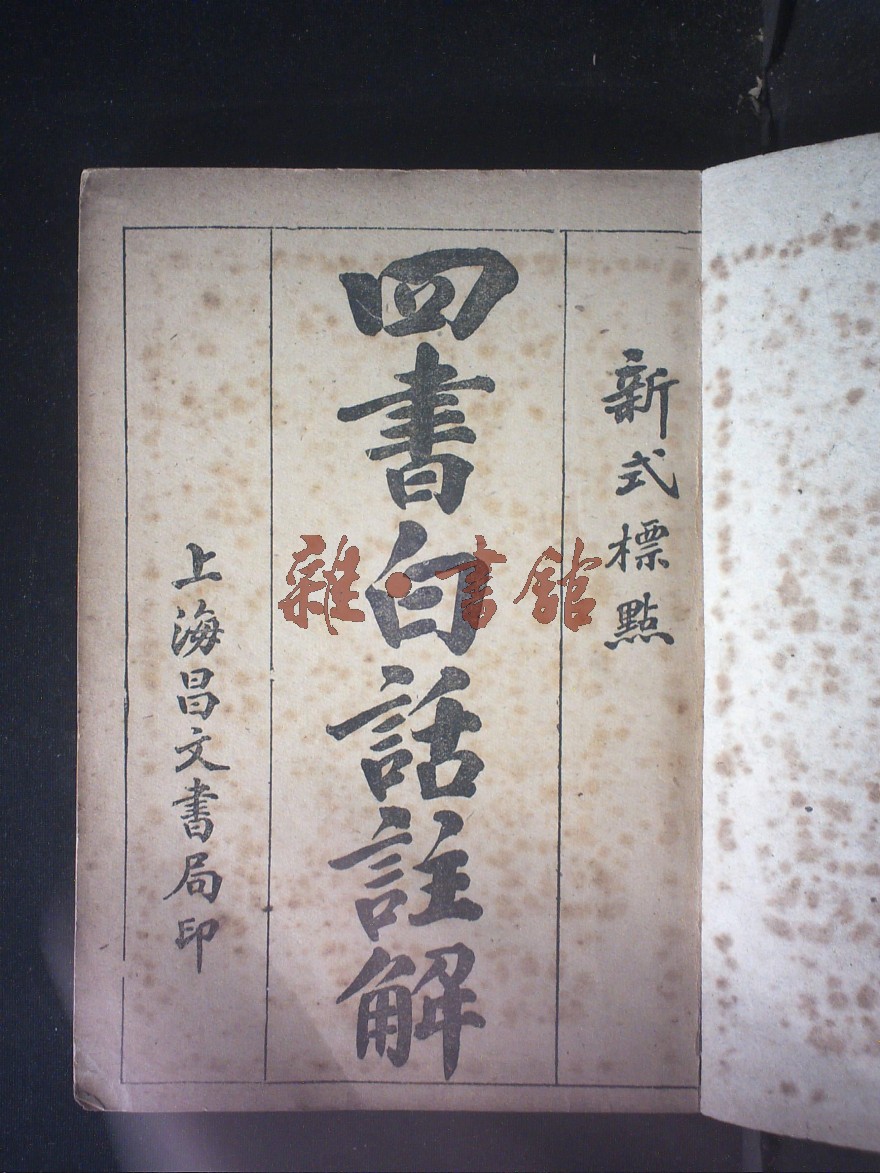 新式標點
四書白話註解
上海昌文書局印
雜·書館